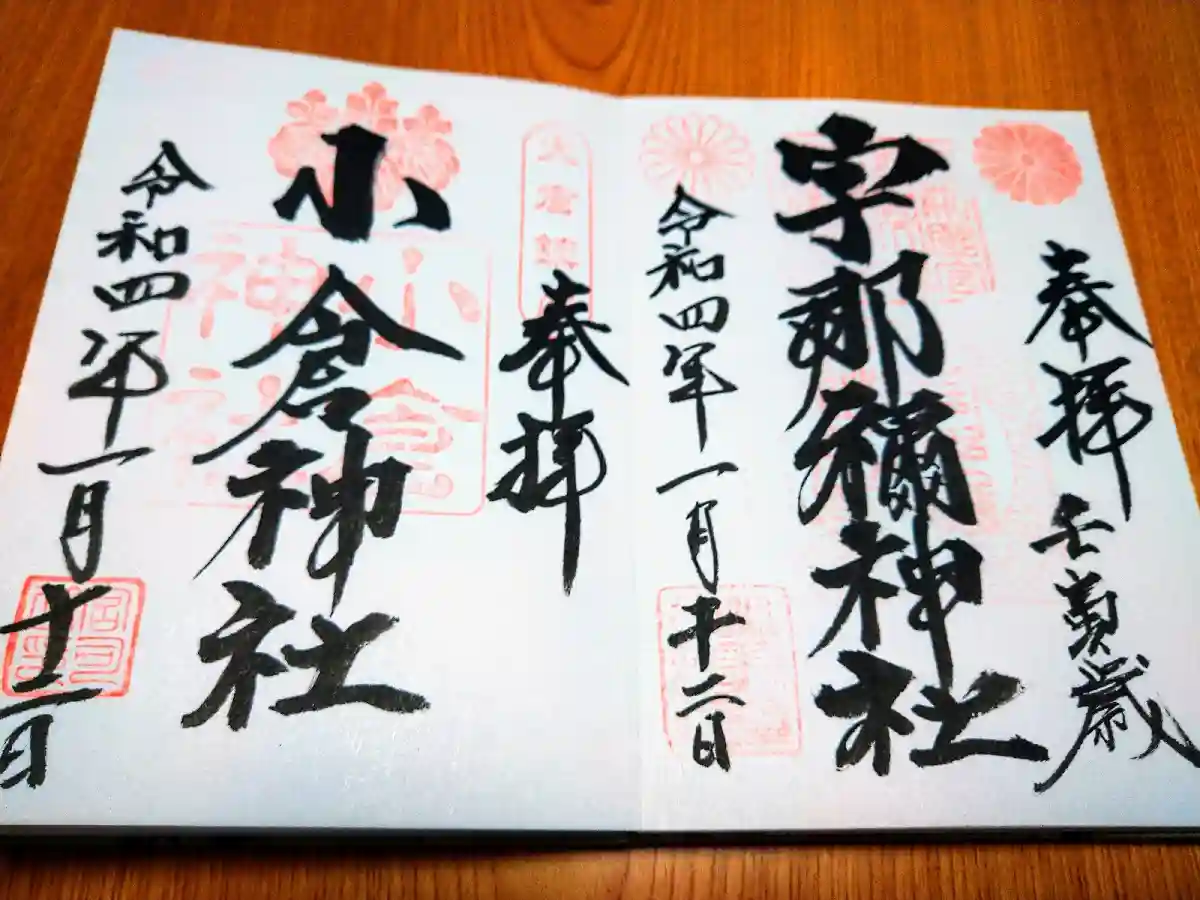 奉拝 壬寅歳
宇那禰神社
令和四年一月十二日
奉拝
小倉神社
小倉
神社
令和四年一月十二日